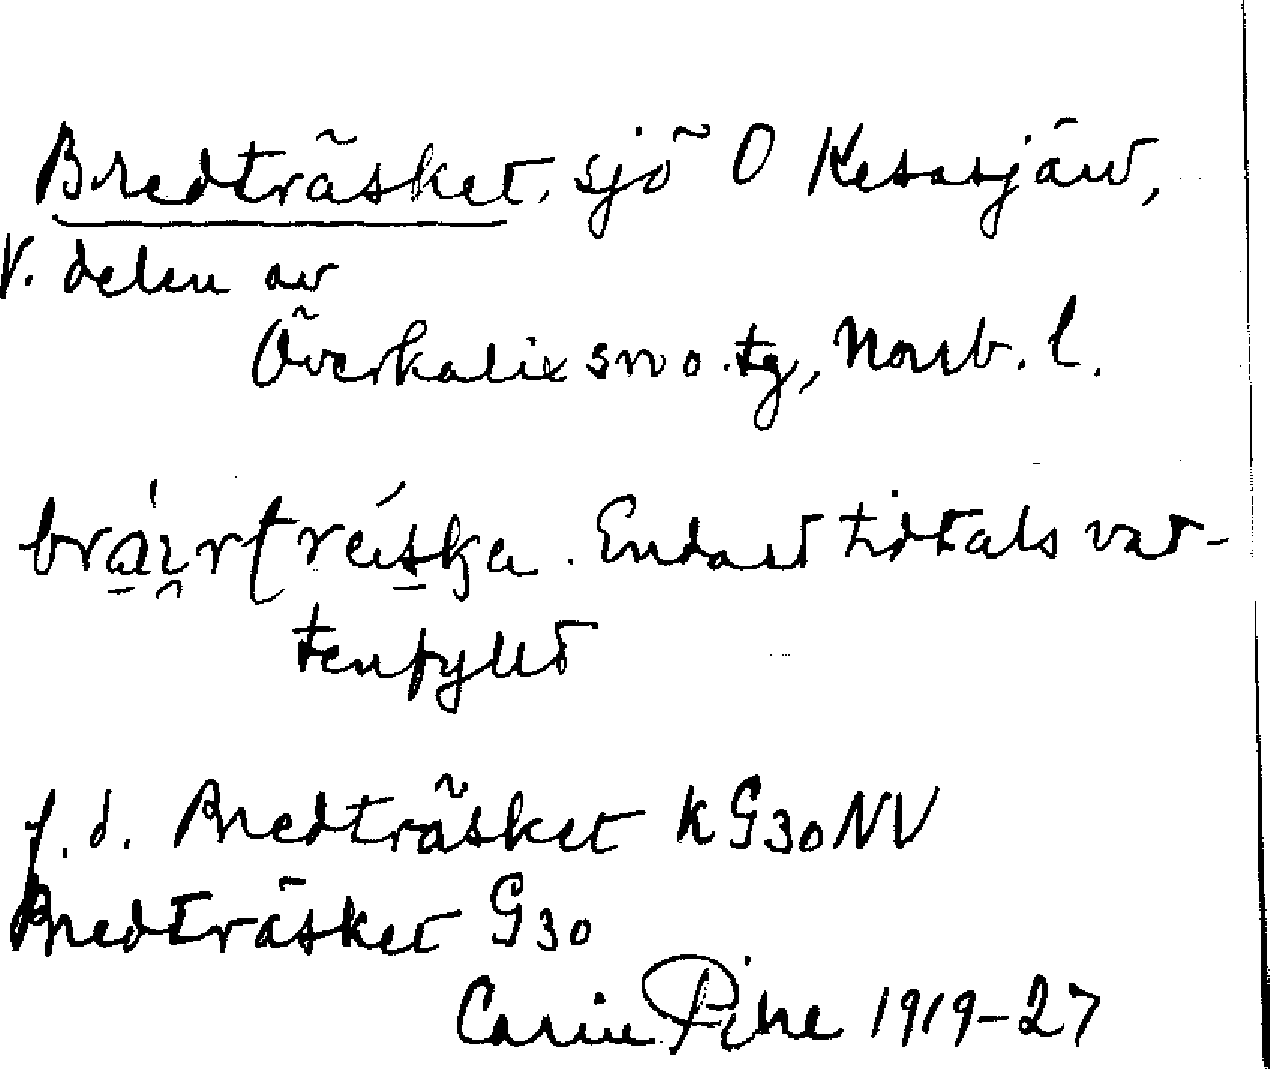 Bredträsket, sjö O Kesasjärv,
V. delen av
Överkalix sn o. tg, Norrb. l.
Endast tidtals vat-
tenfylld
f.d. Bredträsket k G30NV
Bredträsket G30
Carin Pihl 1919-27